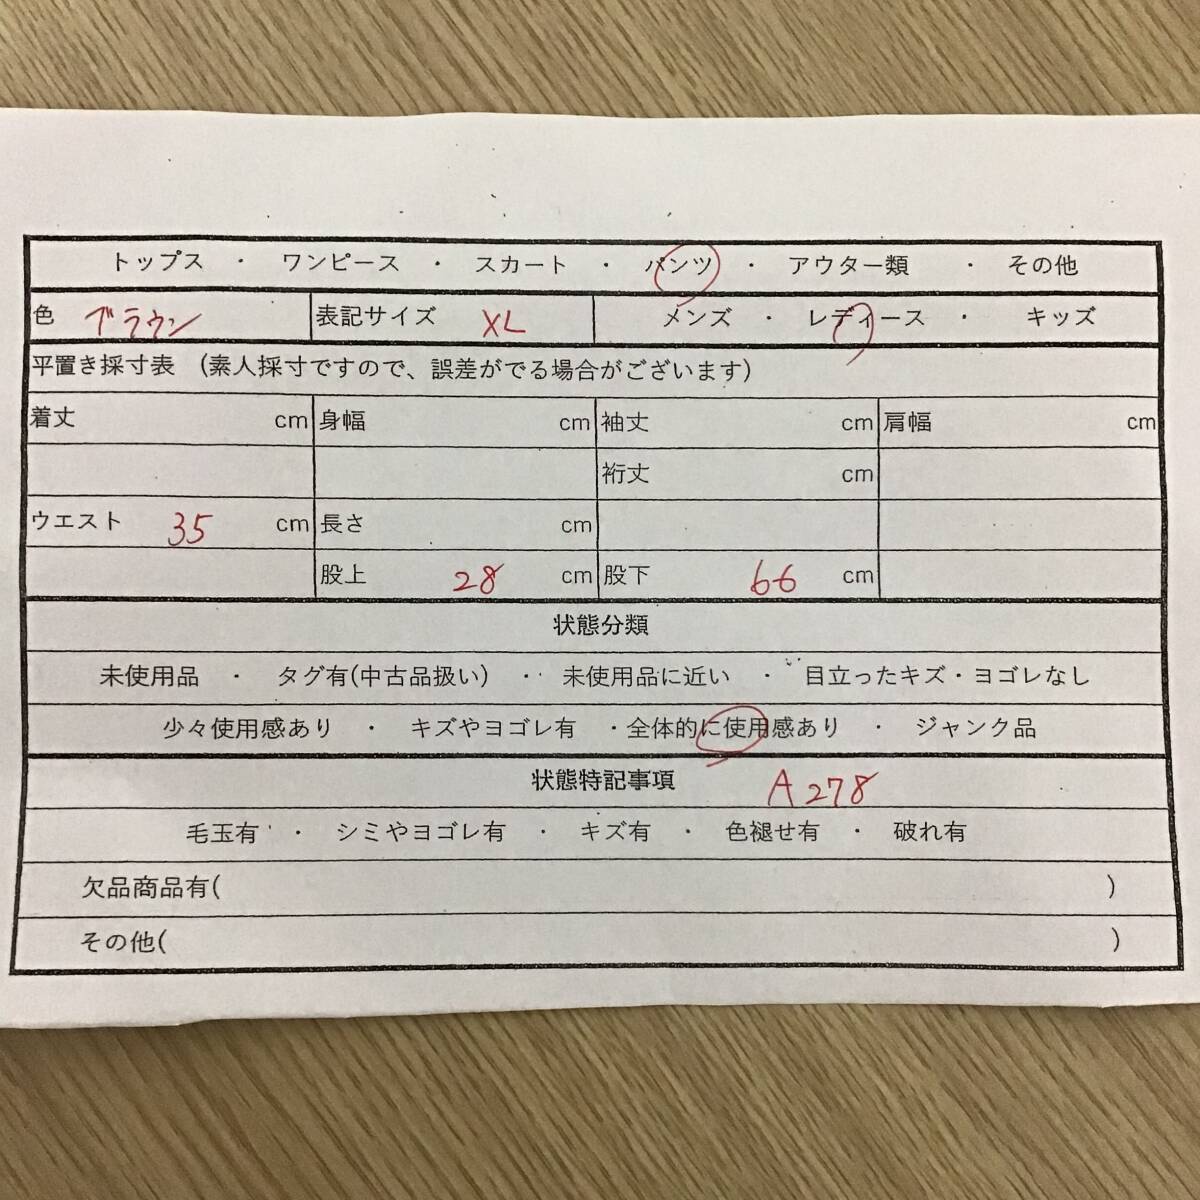 トップス ・ ワンピース ・ スカート ・ パンツ ・ アウター類 ・ その他
色 ブラウン 表記サイズ XL メンズ ・ レディース ・ キッズ
平置き採寸表 (素人採寸ですので、誤差がでる場合がございます)
着丈 cm 身幅 cm 袖丈 cm 肩幅 cm
裄丈 cm
ウエスト 35 cm 長さ cm
股上 28 cm 股下 66 cm
状態分類
未使用品 ・ タグ有(中古品扱い) ・ 未使用品に近い ・ 目立ったキズ・ヨゴレなし
少々使用感あり ・ キズやヨゴレ有 ・全体的に使用感あり ・ ジャンク品
状態特記事項 A278
毛玉有 ・ シミやヨゴレ有 ・ キズ有 ・ 色褪せ有 ・ 破れ有
欠品商品有( )
その他( )